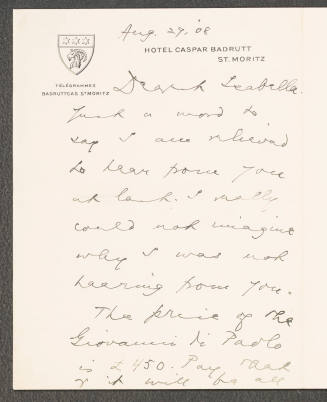 Aug. 29, '08
HOTEL CASPAR BADRUTT
ST. MORITZ
TÉLÉGRAMMES
BADRUTTCAS ST MORITZ
Dearest Isabella.
Just a word to
say I am relieved
to hear from you
at last. I really
could not imagine
why I was not
hearing from you.
The price of the
Giovanni di Paolo
is £450. Pay that
& it will be all